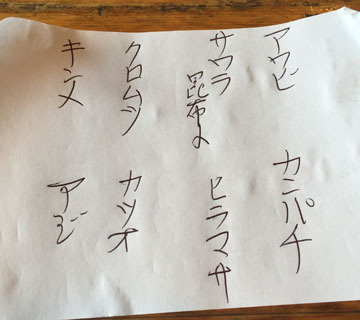 アワビ
カンパチ
サワラ
昆布〆
ヒラマサ
クロムツ
カツオ
キンメ
アジ